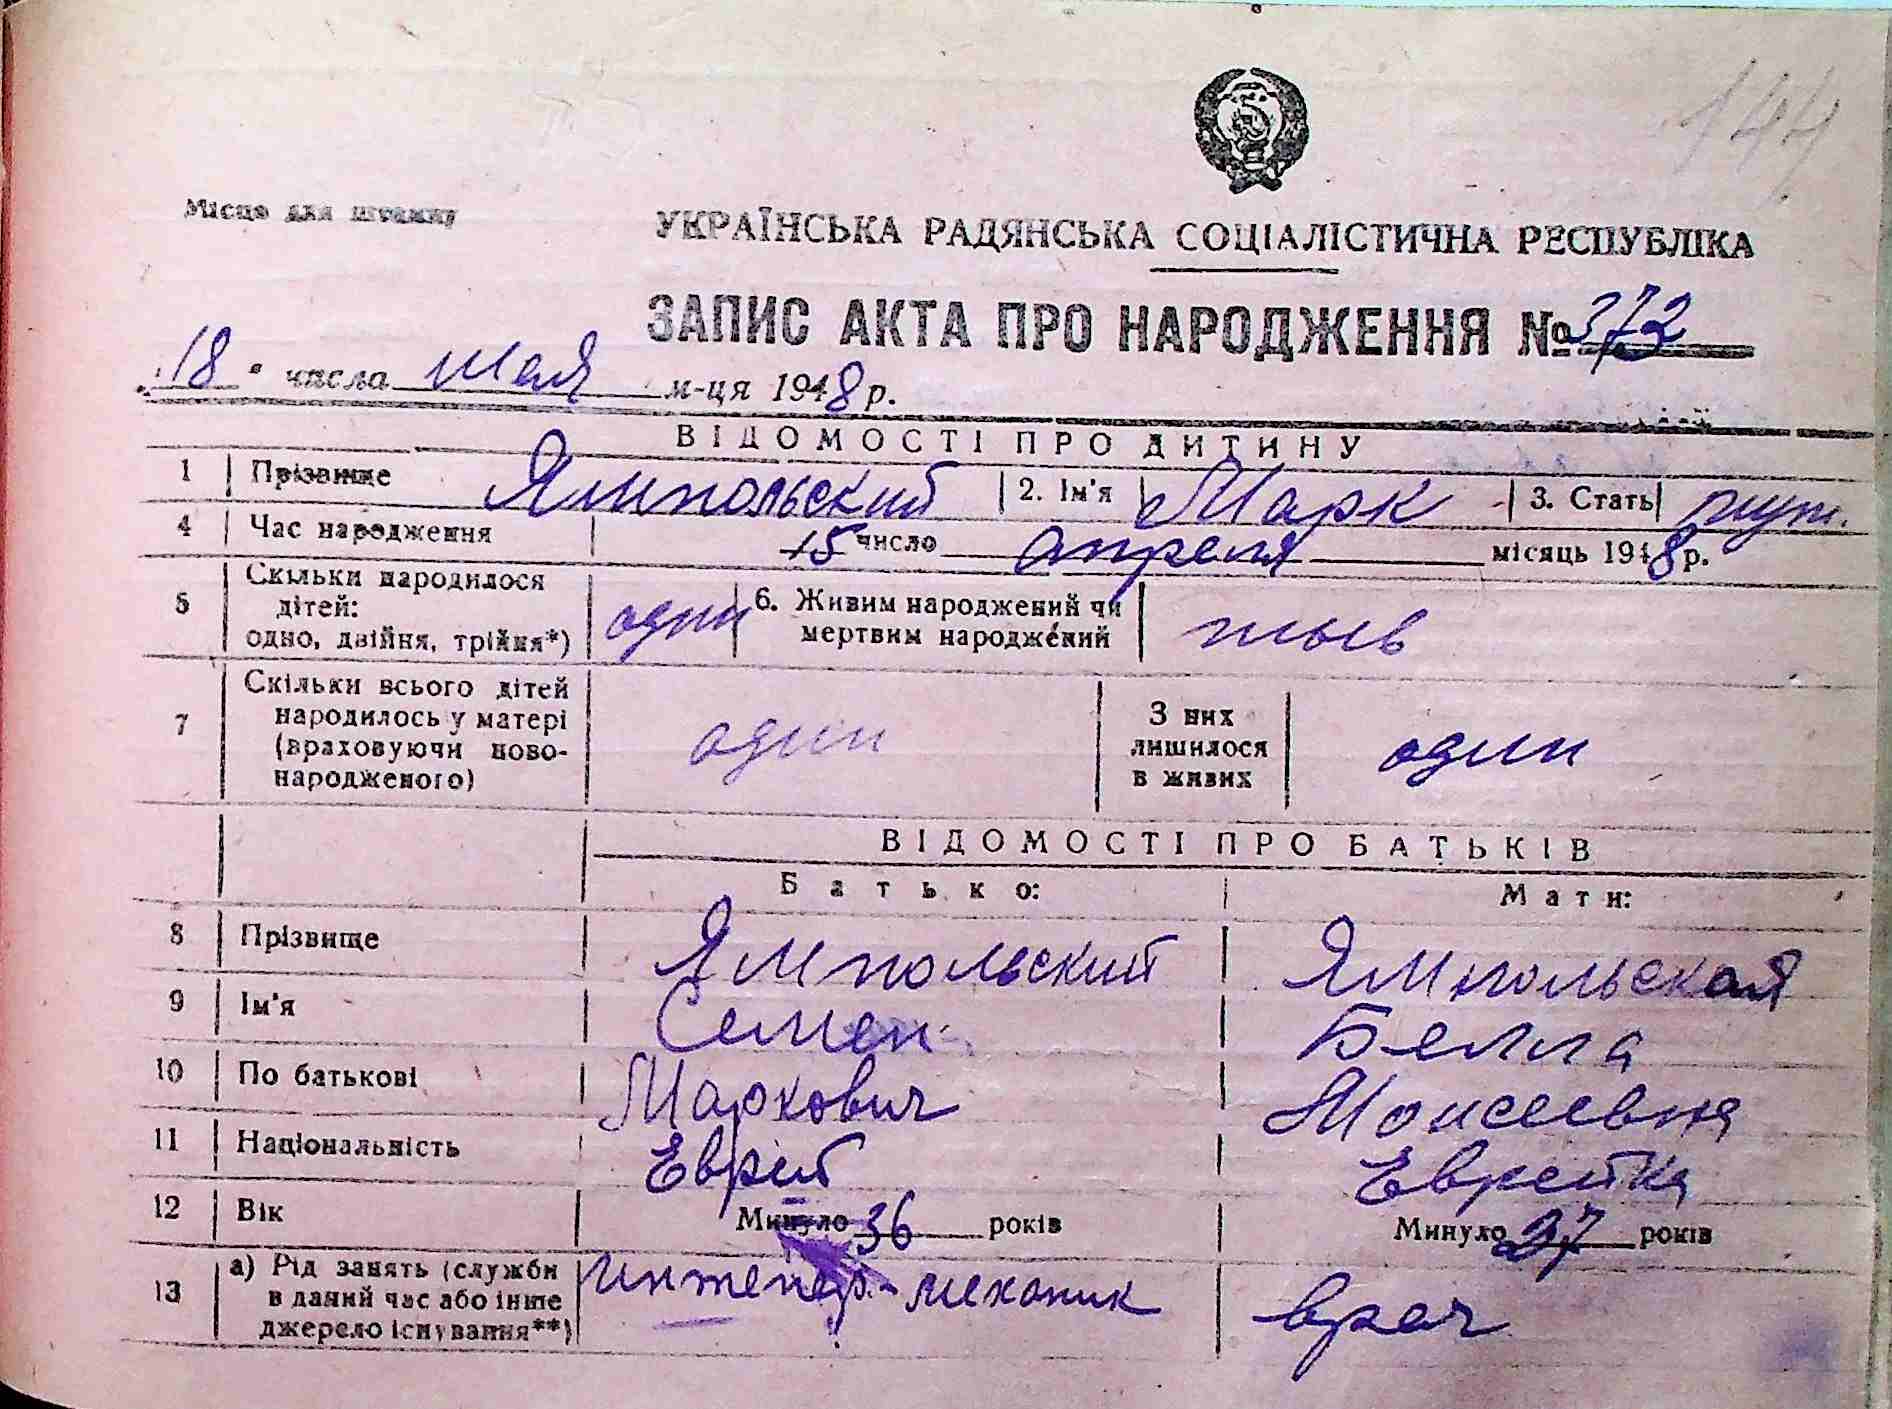 144
Місце для штампу
УКРАЇНСЬКА РАДЯНСЬКА СОЦІАЛІСТИЧНА РЕСПУБЛІКА
ЗАПИС АКТА ПРО НАРОДЖЕННЯ № 372
"18" числа мая м-ця 1948 р.
ВІДОМОСТІ ПРО ДИТИНУ
1 Прізвище Ямпольский 2. Ім'я Марк 3. Стать муж.
4 Час народження 15 число апреля місяць 1948 р.
5 Скільки народилося дітей: одно, двійня, трійня*) один 6. Живим народжений чи мертвим народжений жив
7 Скільки всього дітей народилось у матері (враховуючи новонародженого) один З них лишилося в живих один
ВІДОМОСТІ ПРО БАТЬКІВ
Батько: Мати:
8 Прізвище Ямпольский Ямпольская
9 Ім'я Семен Белла
10 По батькові Маркович Моисеевна
11 Національність Еврей Еврейка
12 Вік Минуло 36 років Минуло 27 років
13 а) Рід занять (служби в даний час або інше джерело існування**) инженер-механик врач